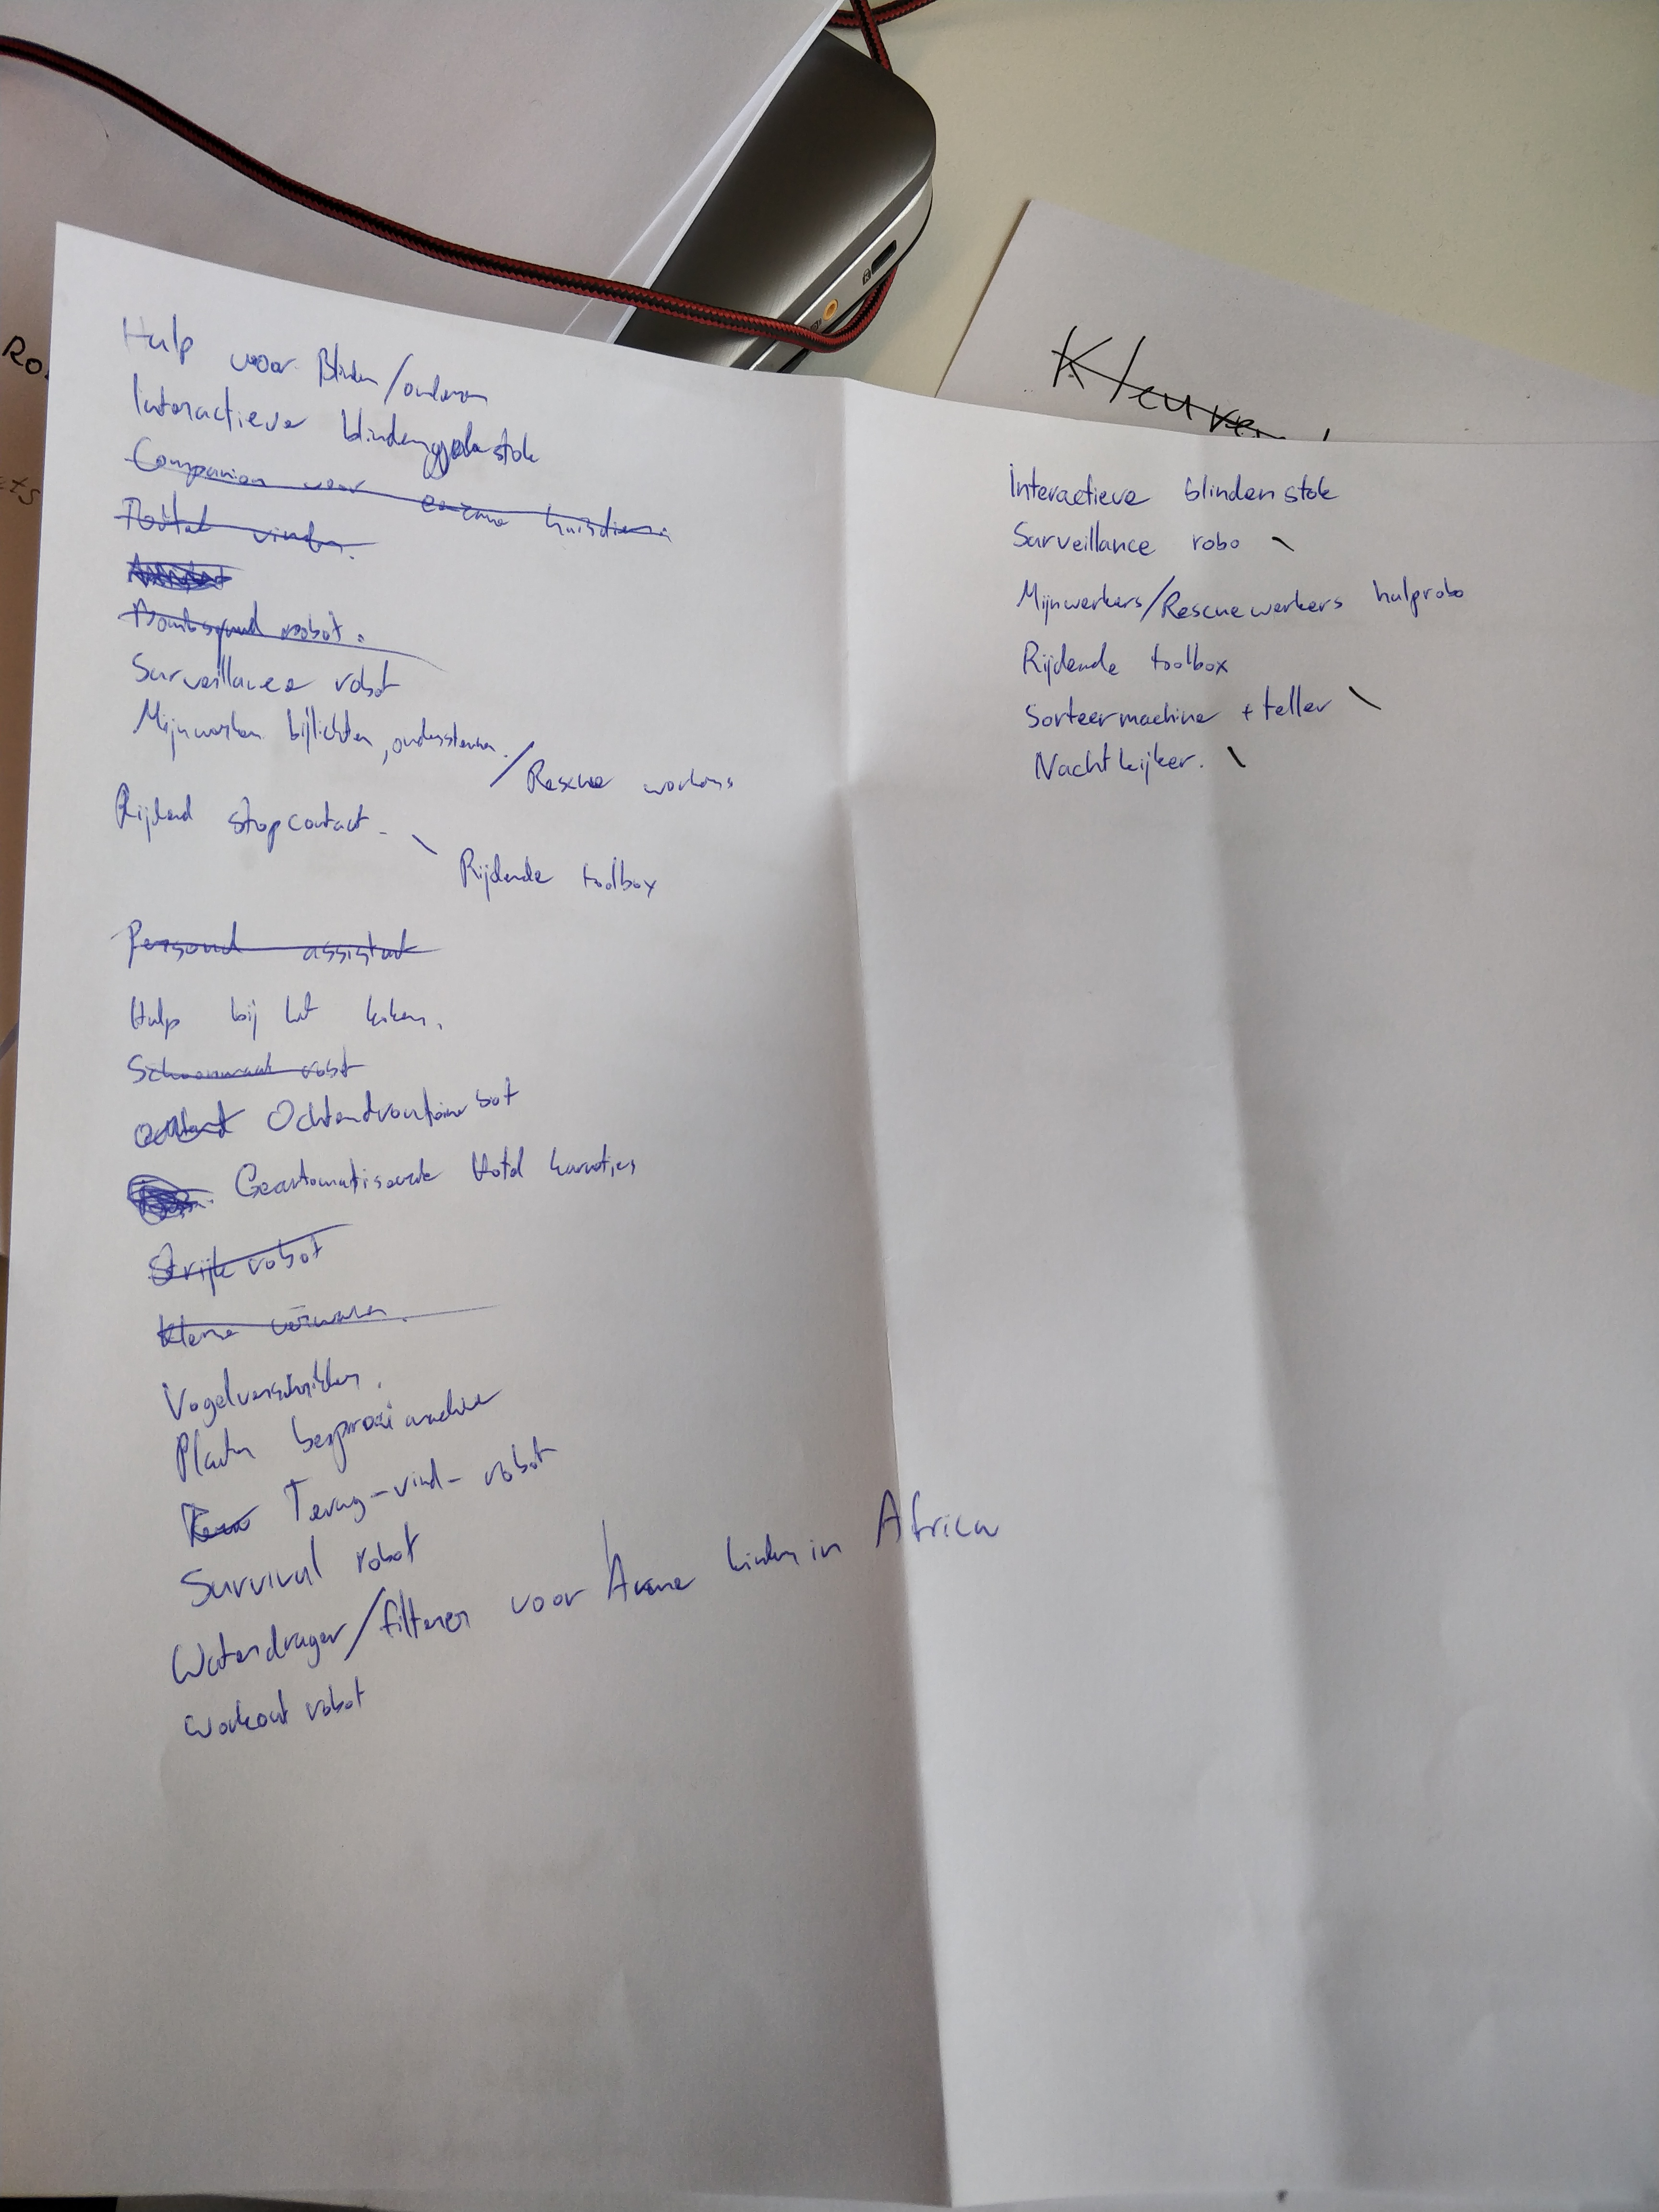 Ro
ets
Kleuren
Hulp voor Blinden/ouderen
Interactieve blindenggelstok
Companion voor eenzame huisdieren
Toilet vinder.
Bombsquad robot.
Surveillance robot
Mijnwerkers bijlichten, ondersteunen. / Rescue workers
Rijdend stopcontact - \ Rijdende toolbox
Personal assistant
Hulp bij het koken.
Schoonmaak robot
Ochtendroutine bot
Geautomatiseerde Hotel karretjes
Strijk robot
Kleine
Vogelverschrikker.
Planten besproei machine
Terug-vind-robot
Survival robot
Waterdrager/filterer voor Arme kinderen in Africa
Workout robot
Interactieve blindenstok
Surveillance robo \
Mijnwerkers/Rescueworkers hulprobo
Rijdende toolbox
Sorteermachine + teller \
Nachtkijker. \